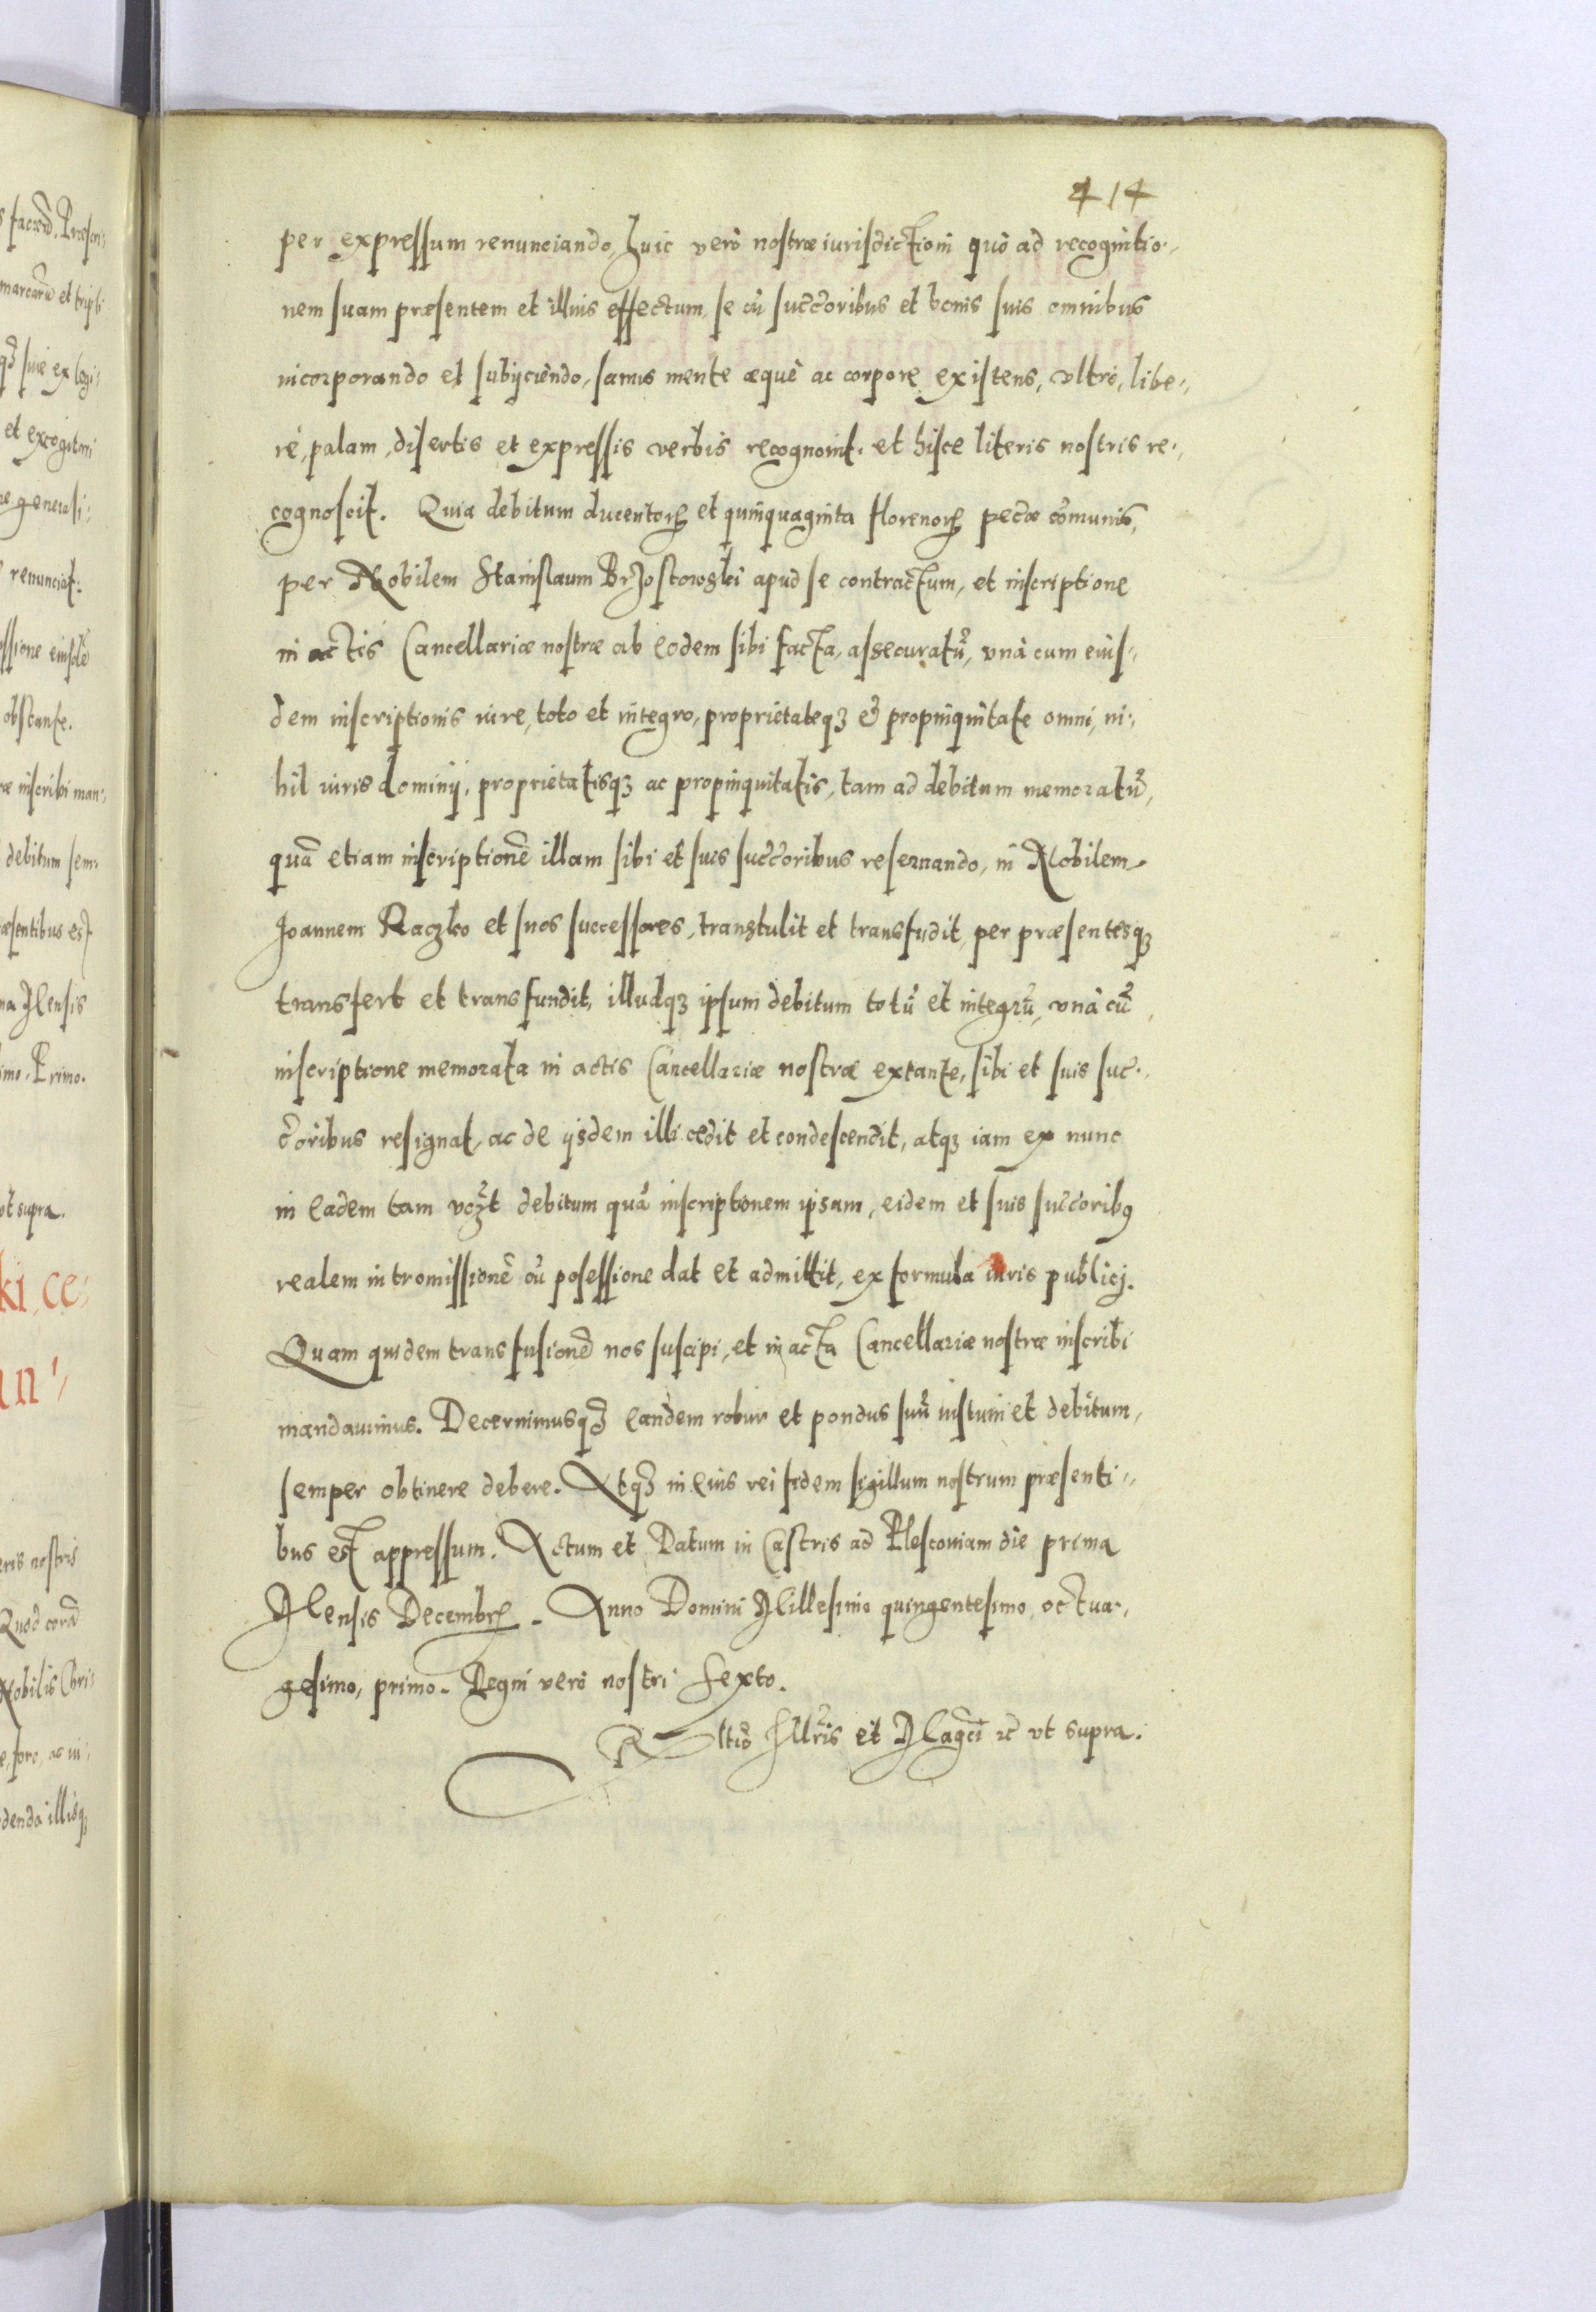 414
per expressum renunciando, huic verò nostræ iurisdictioni quò ad recognitio-
nem suam præsentem et illius effectum, se cũ succ̃oribus et bonis suis omnibus
incorporando et subijciendo, sanus mente æquè ac corpore existens, vltrò, libe-
rè, palam, disertis et expressis verbis recognouit. et hisce literis nostris re-
cognoscit. Quia debitum ducentorꝝ et quinquaginta florenorꝝ pecũæ cõmunis,
per Nobilem Stanislaum Brzostowski apud se contractum, et inscriptione
in actis Cancellariæ nostræ ab eodem sibi facta, assecuratũ, vnà cum eius-
dem inscriptionis iure, toto et integro, proprietateqꝫ et propinquitate omni, ni-
hil iuris dominij, proprietatisqꝫ ac propinquitatis, tam ad debitum memoratũ,
quã etiam inscriptionẽ illam sibi et suis succ̃oribus reseruando, in Nobilem
Joannem Raczko et suos successores, transtulit et transfudit, per præsentesqꝫ
transfert et transfundit, illudqꝫ ipsum debitum totũ et integrũ, vnà cũ
inscriptione memorata in actis Cancellariæ nostræ extante, sibi et suis suc-
c̃oribus resignat, ac de ijsdem illi cedit et condescendit, atqꝫ iam ex nunc
in eadem tam debitum quã inscriptionem ipsam, eidem et suis succ̃oribꝰ
realem intromissionẽ cũ posessione dat et admittit, ex formula iuris publici.
Quam quidem transfusionẽ nos suscipi, et in acta Cancellariæ nostræ inscribi
mandauimus. Decernimusqꝫ eandem robur et pondus suũ iustum et debitum,
semper obtinere debere. Atqꝫ in eius rei fidem sigillum nostrum præsenti-
bus est appressum. Actum et Datum in Castris ad Plescouiam die prima
Mensis Decembrꝭ. Anno Domini Millesimo quingentesimo, octua-
gesimo, primo. Regni verò nostri Sexto.
Rltio Illr̃is et Magc̃i &c ut supra.